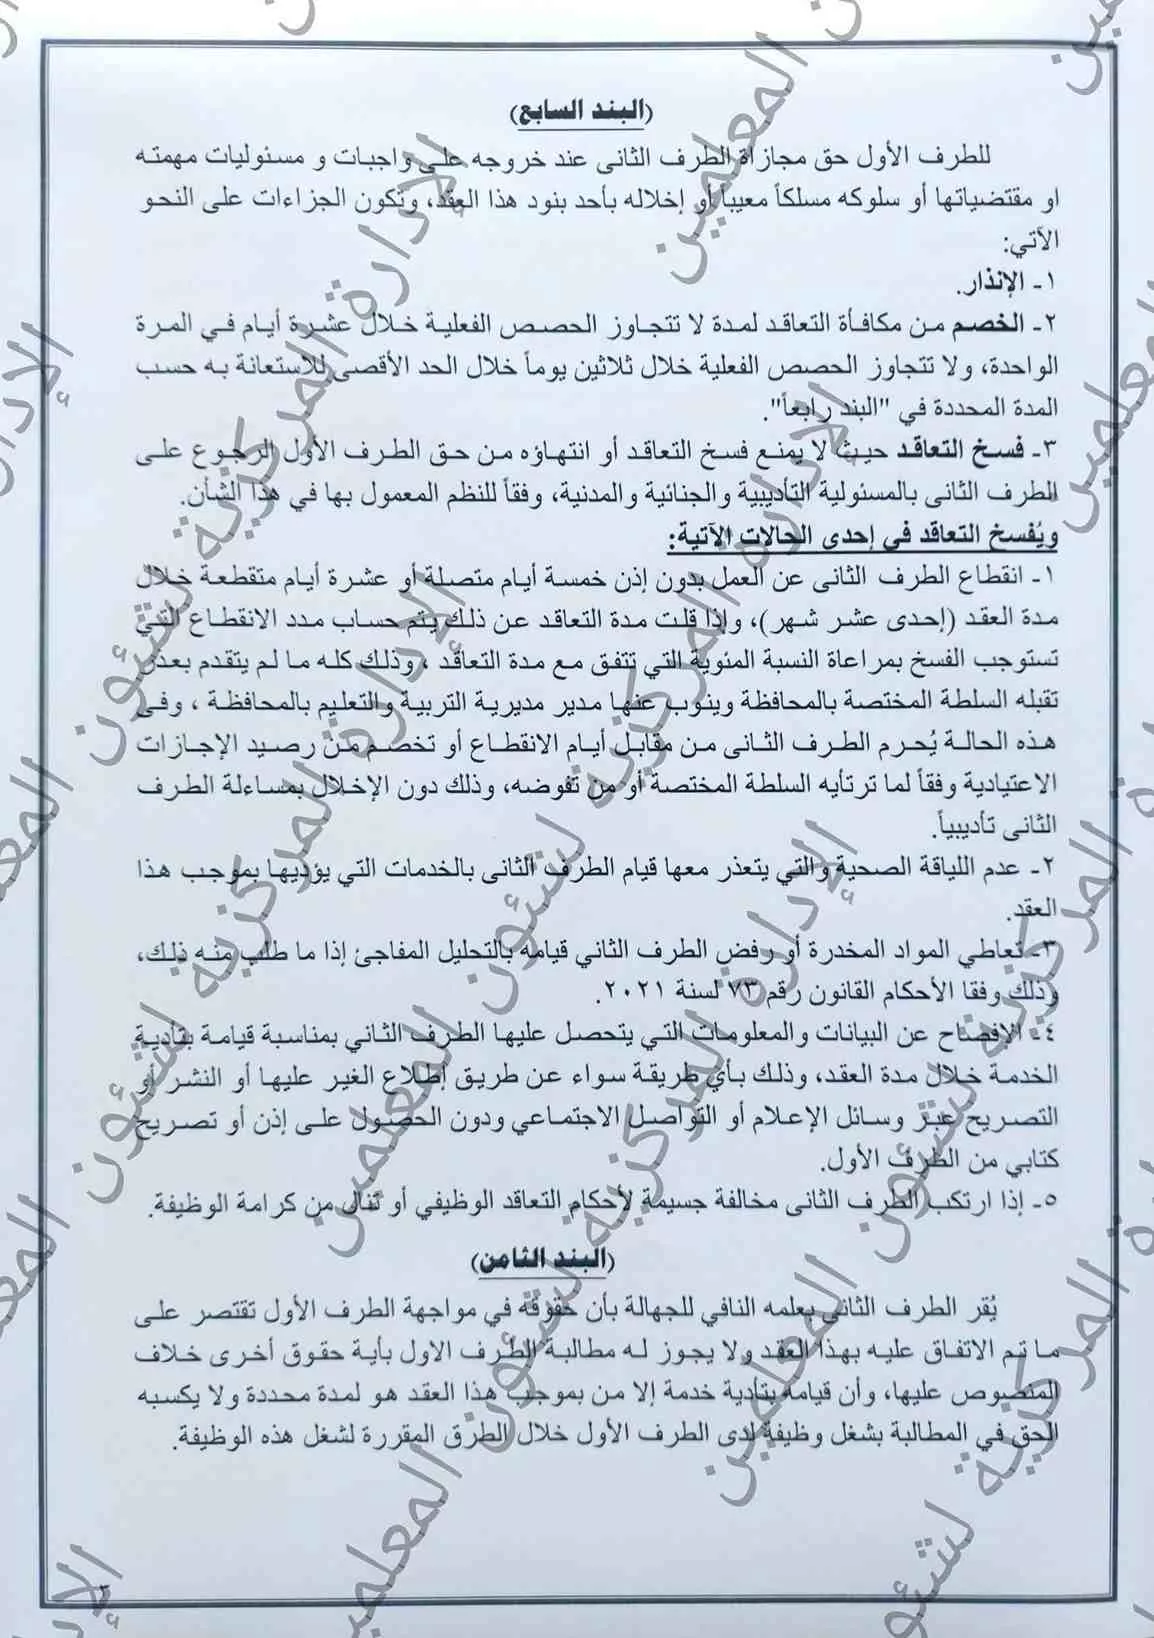 (البند السابع)
للطرف الأول حق مجازاة الطرف الثانى عند خروجه على واجبات و مسئوليات مهمته
او مقتضياتها أو سلوكه مسلكاً معيباً أو إخلاله بأحد بنود هذا العقد، وتكون الجزاءات على النحو
الآتي:
١- الإنذار.
٢- الخصم من مكافأة التعاقد لمدة لا تتجاوز الحصص الفعلية خلال عشرة أيام في المرة
الواحدة، ولا تتجاوز الحصص الفعلية خلال ثلاثين يوماً خلال الحد الأقصى للاستعانة به حسب
المدة المحددة في "البند رابعاً".
٣- فسخ التعاقد حيث لا يمنع فسخ التعاقد أو انتهاؤه من حق الطرف الأول الرجوع على
الطرف الثانى بالمسئولية التأديبية والجنائية والمدنية، وفقاً للنظم المعمول بها في هذا الشأن.
ويُفسخ التعاقد في إحدى الحالات الآتية:
١- انقطاع الطرف الثانى عن العمل بدون إذن خمسة أيام متصلة أو عشرة أيام متقطعة خلال
مدة العقد (إحدى عشر شهر)، وإذا قلت مدة التعاقد عن ذلك يتم حساب مدد الانقطاع التي
تستوجب الفسخ بمراعاة النسبة المئوية التي تتفق مع مدة التعاقد ، وذلك كله ما لم يتقدم بعذر
تقبله السلطة المختصة بالمحافظة وينوب عنها مدير مديرية التربية والتعليم بالمحافظة ، وفى
هذه الحالة يُحرم الطرف الثانى من مقابل أيام الانقطاع أو تخصم من رصيد الإجازات
الاعتيادية وفقاً لما ترتأيه السلطة المختصة أو من تفوضه، وذلك دون الإخلال بمساءلة الطرف
الثانى تأديبياً.
٢- عدم اللياقة الصحية والتي يتعذر معها قيام الطرف الثانى بالخدمات التي يؤديها بموجب هذا
العقد.
٣- تعاطي المواد المخدرة أو رفض الطرف الثاني قيامه بالتحليل المفاجئ إذا ما طلب منه ذلك،
وذلك وفقا الأحكام القانون رقم ٧٣ لسنة ٢٠٢١.
٤- الإفصاح عن البيانات والمعلومات التي يتحصل عليها الطرف الثاني بمناسبة قيامة بتأدية
الخدمة خلال مدة العقد، وذلك بأي طريقة سواء عن طريق إطلاع الغير عليها أو النشر أو
التصريح عبر وسائل الإعلام أو التواصل الاجتماعي ودون الحصول على إذن أو تصريح
كتابي من الطرف الأول.
٥- إذا ارتكب الطرف الثانى مخالفة جسيمة لأحكام التعاقد الوظيفي أو تنال من كرامة الوظيفة.
(البند الثامن)
يُقر الطرف الثانى بعلمه النافي للجهالة بأن حقوقه في مواجهة الطرف الأول تقتصر على
ما تم الاتفاق عليه بهذا العقد ولا يجوز له مطالبة الطرف الاول بأية حقوق أخرى خلاف
المنصوص عليها، وأن قيامه بتأدية خدمة إلا من بموجب هذا العقد هو لمدة محددة ولا يكسبه
الحق في المطالبة بشغل وظيفة لدى الطرف الأول خلال الطرق المقررة لشغل هذه الوظيفة.
الإدارة المركزية لشئون المعلمين